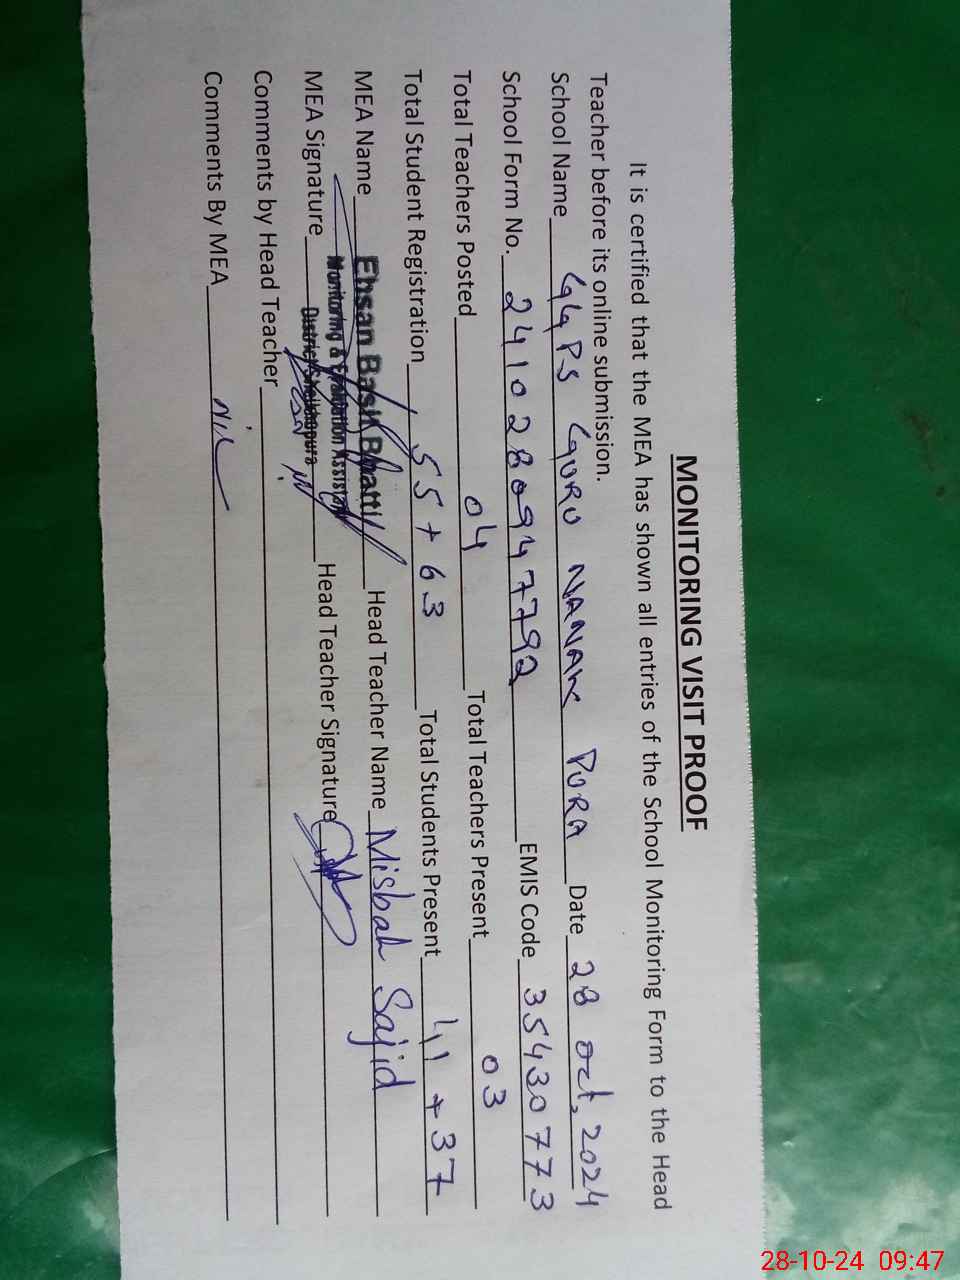 MONITORING VISIT PROOF
It is certified that the MEA has shown all entries of the School Monitoring Form to the Head
Teacher before its online submission.
School Name GGPS GURU NANAK PURA Date 28 Oct, 2024
School Form No. 2410280947792 EMIS Code 35430773
Total Teachers Posted 04 Total Teachers Present 03
Total Student Registration 55+63 Total Students Present 41+37
MEA Name Ehsan Basit Bhatti Head Teacher Name Misbah Sajid
Monitoring & Evaluation Assistant
MEA Signature District Sheikhupura Head Teacher Signature
Comments by Head Teacher
Comments By MEA Nil
28-10-24 09:47